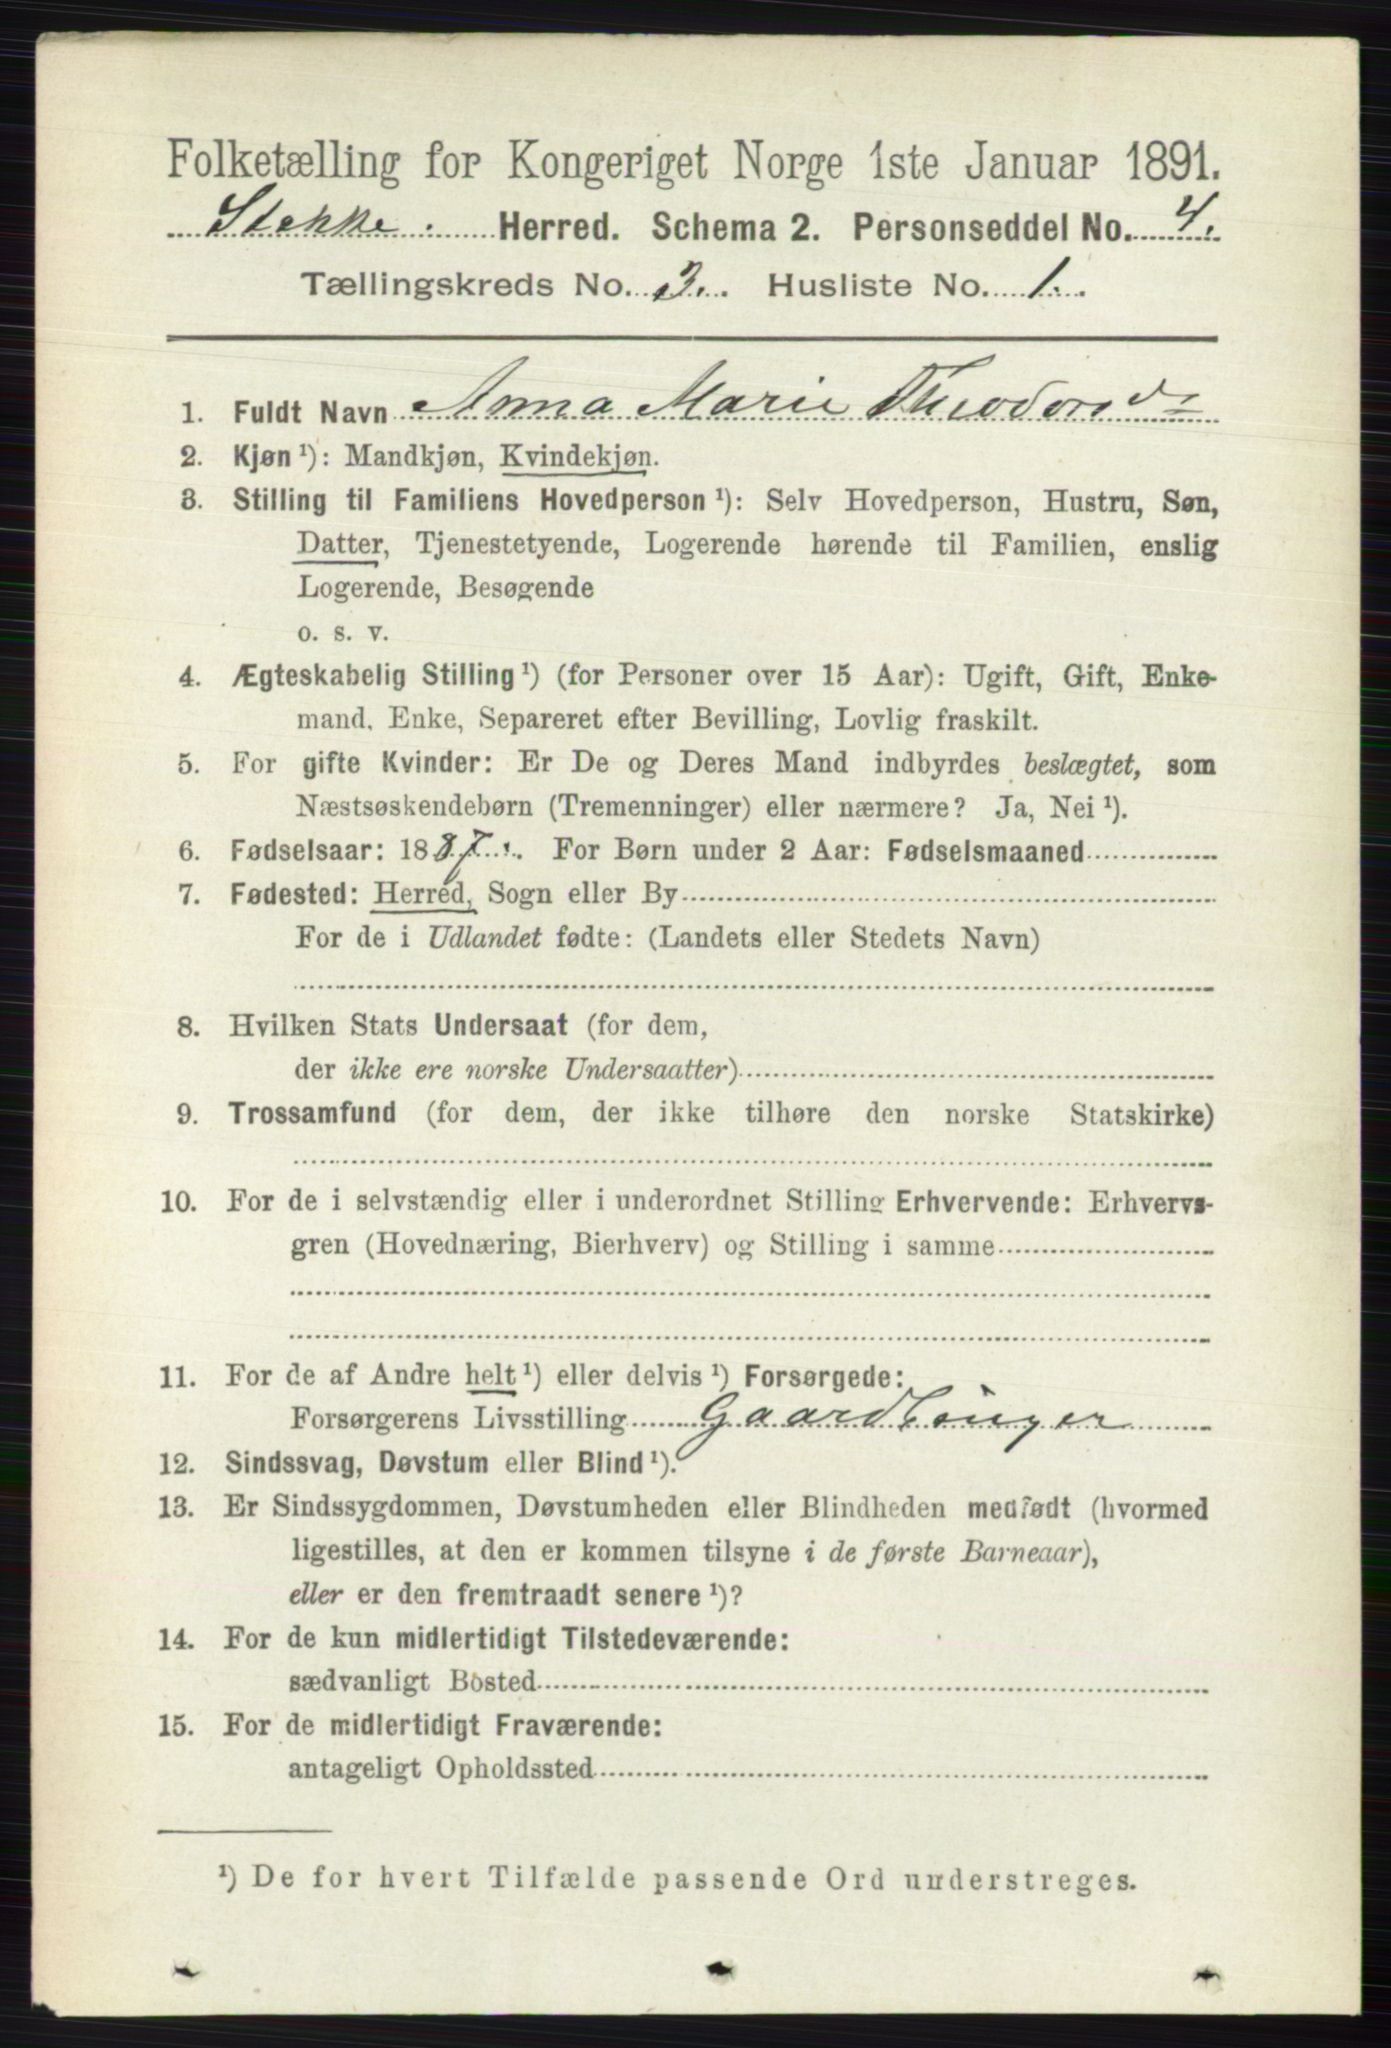 Folketælling for Kongeriget Norge 1ste Januar 1891.
Stokke. Herred. Schema 2. Personseddel No. 4.
Tællingskreds No. 3. Husliste No. 1.
1. Fuldt Navn Anna Marie Theodorsd.
2. Kjøn ¹): Mandkjøn, Kvindekjøn.
3. Stilling til Familiens Hovedperson ¹): Selv Hovedperson, Hustru, Søn,
Datter, Tjenestetyende, Logerende hørende til Familien, enslig
Logerende, Besøgende
o. s. v.
4. Ægteskabelig Stilling ¹) (for Personer over 15 Aar): Ugift, Gift, Enke-
mand, Enke, Separeret efter Bevilling, Lovlig fraskilt.
5. For gifte Kvinder: Er De og Deres Mand indbyrdes beslægtet, som
Næstsøskendebørn (Tremenninger) eller nærmere? Ja, Nei ¹).
6. Fødselsaar: 1887. For Børn under 2 Aar: Fødselsmaaned
7. Fødested: Herred, Sogn eller By
For de i Udlandet fødte: (Landets eller Stedets Navn)
8. Hvilken Stats Undersaat (for dem,
der ikke ere norske Undersaatter)
9. Trossamfund (for dem, der ikke tilhøre den norske Statskirke)
10. For de i selvstændig eller i underordnet Stilling Erhvervende: Erhvervs-
gren (Hovednæring, Bierhverv) og Stilling i samme
11. For de af Andre helt ¹) eller delvis ¹) Forsørgede:
Forsørgerens Livsstilling Gaardbruger
12. Sindssvag, Døvstum eller Blind ¹).
13. Er Sindssygdommen, Døvstumheden eller Blindheden medfødt (hvormed
ligestilles, at den er kommen tilsyne i de første Barneaar),
eller er den fremtraadt senere ¹)?
14. For de kun midlertidigt Tilstedeværende:
sædvanligt Bosted
15. For de midlertidigt Fraværende:
antageligt Opholdssted
¹) De for hvert Tilfælde passende Ord understreges.